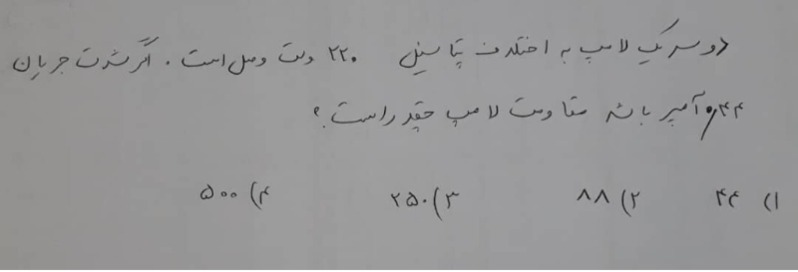 دو سر یک لامپ به اختلاف پتانسیل ۲۲۰ ولت وصل است. اگر شدت جریان
۰٫۴۴ آمپر باشد مقاومت لامپ چقدر است؟
۱) ۴۴ ۲) ۸۸ ۳) ۲۵۰ ۴) ۵۰۰